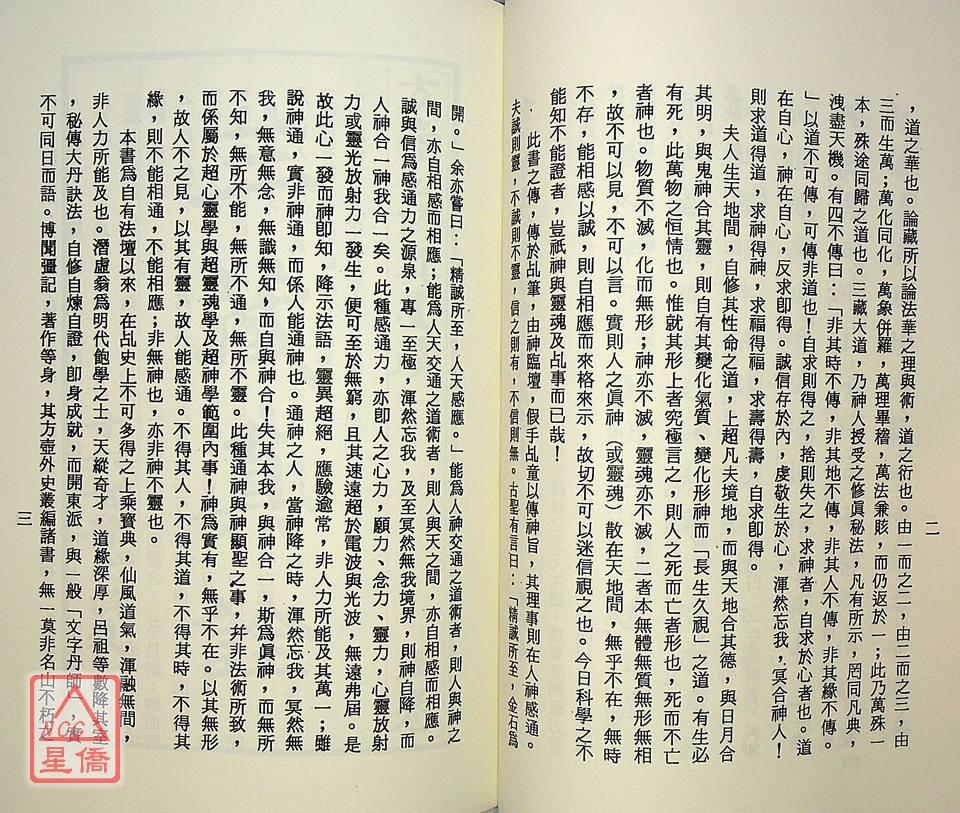 二
，道之華也。論藏所以論法華之理與術，道之衍也。由一而之二，由二而之三，由
三而生萬；萬化同化，萬象併羅，萬理畢稽，萬法兼賅，而仍返於一；此乃萬殊一
本，殊途同歸之道也。三藏大道，乃神人授受之修眞秘法，凡有所示，罔同凡典，
洩盡天機。有四不傳曰：「非其時不傳，非其地不傳，非其人不傳，非其緣不傳。
」以道不可傳，可傳非道也！自求則得之，捨則失之，求神者，自求於心者也。道
在自心，神在自心，反求卽得。誠信存於內，虔敬生於心，渾然忘我，冥合神人！
則求道得道，求神得神，求福得福，求壽得壽，自求卽得。
夫人生天地間，自修其性命之道，上超凡夫境地，而與天地合其德，與日月合
其明，與鬼神合其靈，則自有其變化氣質、變化形神而「長生久視」之道。有生必
有死，此萬物之恒情也。惟就其形上者究極言之，則人之死而亡者形也，死而不亡
者神也。物質不滅，化而無形；神亦不滅，靈魂亦不滅，二者本無體無質無形無相
，故不可以見，不可以言。實則人之眞神（或靈魂）散在天地間，無乎不在，無時
不存，能相感以誠，則自相應而來格來示，故切不可以迷信視之也。今日科學之不
能知不能證者，豈祇神與靈魂及乩事而已哉！
此書之傳，傳於乩筆，由神臨壇，假手乩童以傳神旨，其理事則在人神感通。
夫誠則靈，不誠則不靈，信之則有，不信則無。古聖有言曰：「精誠所至，金石爲
開。」余亦嘗曰：「精誠所至，人天感應。」能爲人神交通之道術者，則人與神之
間，亦自相感而相應；能爲人天交通之道術者，則人與天之間，亦自相感而相應。
誠與信爲感通力之源泉，專一至極，渾然忘我，及至冥然無我境界，則神自降，而
人神合一神我合一矣。此種感通力，亦卽人之心力、願力、念力、靈力，心靈放射
力或靈光放射力一發生，便可至於無窮，且其速遠超於電波與光波，無遠弗屆。是
故此心一發而神卽知，降示法語，靈異超絕，應驗逾常，非人力所能及其萬一；雖
說神通，實非神通，而係人能通神也。通神之人，當神降之時，渾然忘我，冥然無
我，無意無念，無識無知，而自與神合！失其本我，與神合一，斯爲眞神，而無所
不知，無所不能，無所不通，無所不靈。此種通神與神顯聖之事，幷非法術所致，
而係屬於超心靈學與超靈魂學及超神學範圍內事！神爲實有，無乎不在。以其無形
，故人不之見，以其有靈，故人能感通。不得其人，不得其道，不得其時，不得其
緣，則不能相通，不能相應；非無神也，亦非神不靈也。
本書爲自有法壇以來，在乩史上不可多得之上乘寶典，仙風道氣，渾融無間，
非人力所能及也。潛虛翁爲明代飽學之士，天縱奇才，道緣深厚，呂祖等數降其室
，秘傳大丹訣法，自修自煉自證，卽身成就，而開東派，與一般「文字丹師」，實
不可同日而語。博聞彊記，著作等身，其方壺外史叢編諸書，無一莫非名山不朽之
三
星僑